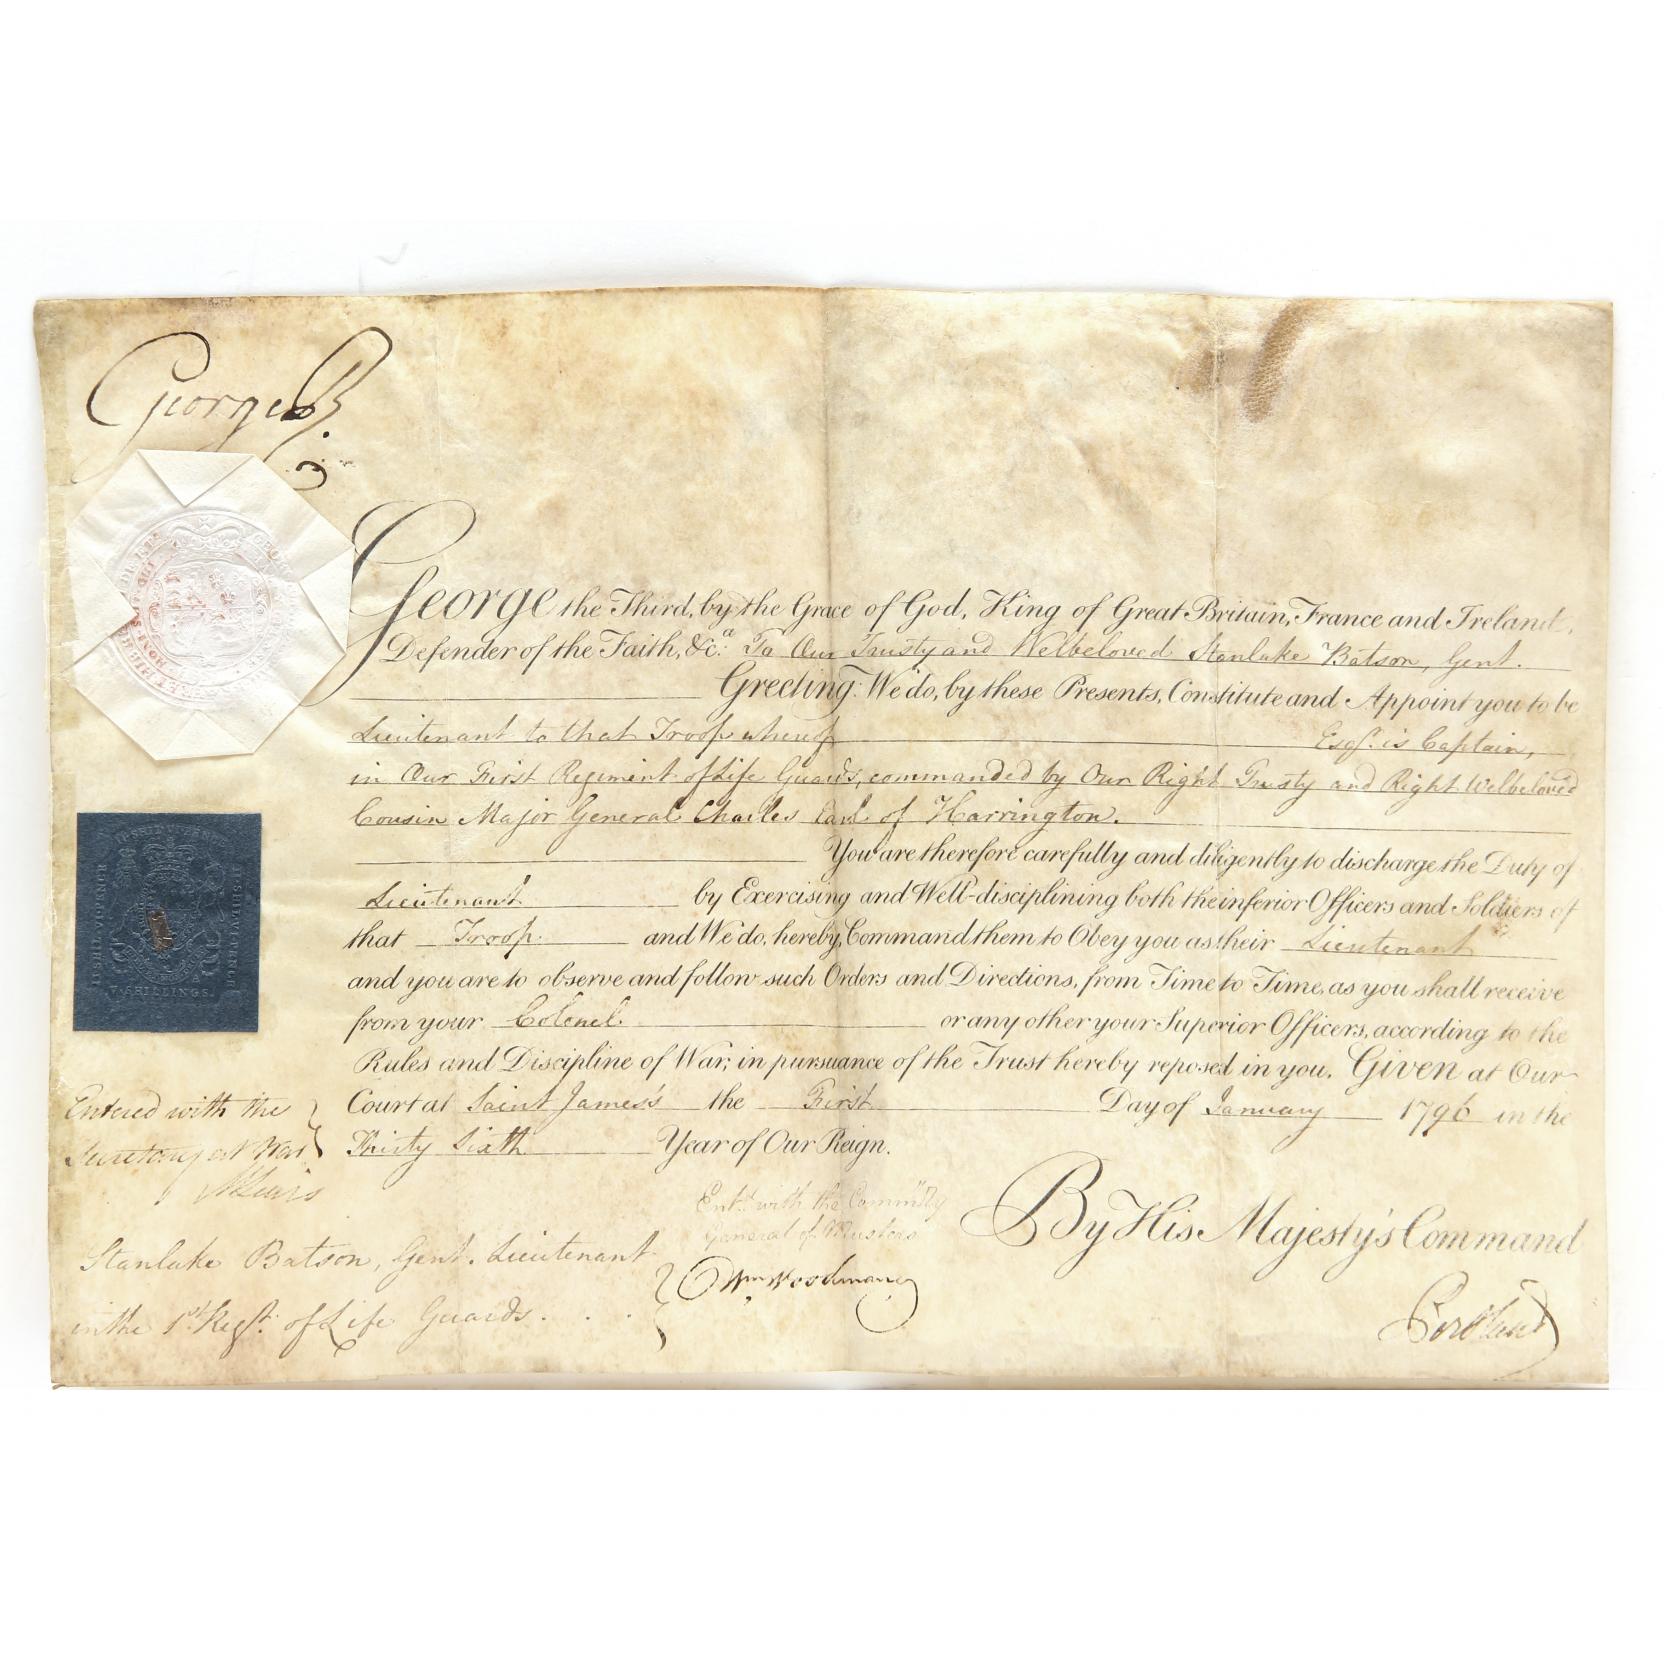 George R
George the Third, by the Grace of God, King of Great Britain, France and Ireland,
Defender of the Faith, &c.a To Our Trusty and Welbeloved Stanlake Batson, Gent.
Greeting: We do, by these Presents, Constitute and Appoint you to be
Lieutenant to that Troop whereof Esqr. is Captain,
in Our First Regiment of Life Guards, commanded by Our Right Trusty and Right Welbeloved
Cousin Major General Charles Earl of Harrington.
You are therefore carefully and diligently to discharge the Duty of
Lieutenant by Exercising and Well-disciplining both the inferior Officers and Soldiers of
that Troop and We do, hereby, Command them to Obey you as their Lieutenant
and you are to observe and follow such Orders and Directions, from Time to Time, as you shall receive
from your Colonel or any other your Superior Officers, according to the
Rules and Discipline of War, in pursuance of the Trust hereby reposed in you. Given at Our
Court at Saint James's the First Day of January 1796 in the
Thirty Sixth Year of Our Reign.
By His Majesty's Command
Portland
V. SHILLINGS.
Entered with the
Secretary at War
MLewis
Entd. with the Commissy
General of Musters
Wm Woodman
Stanlake Batson, Gent. Lieutenant
in the 1st Regt. of Life Guards . . .